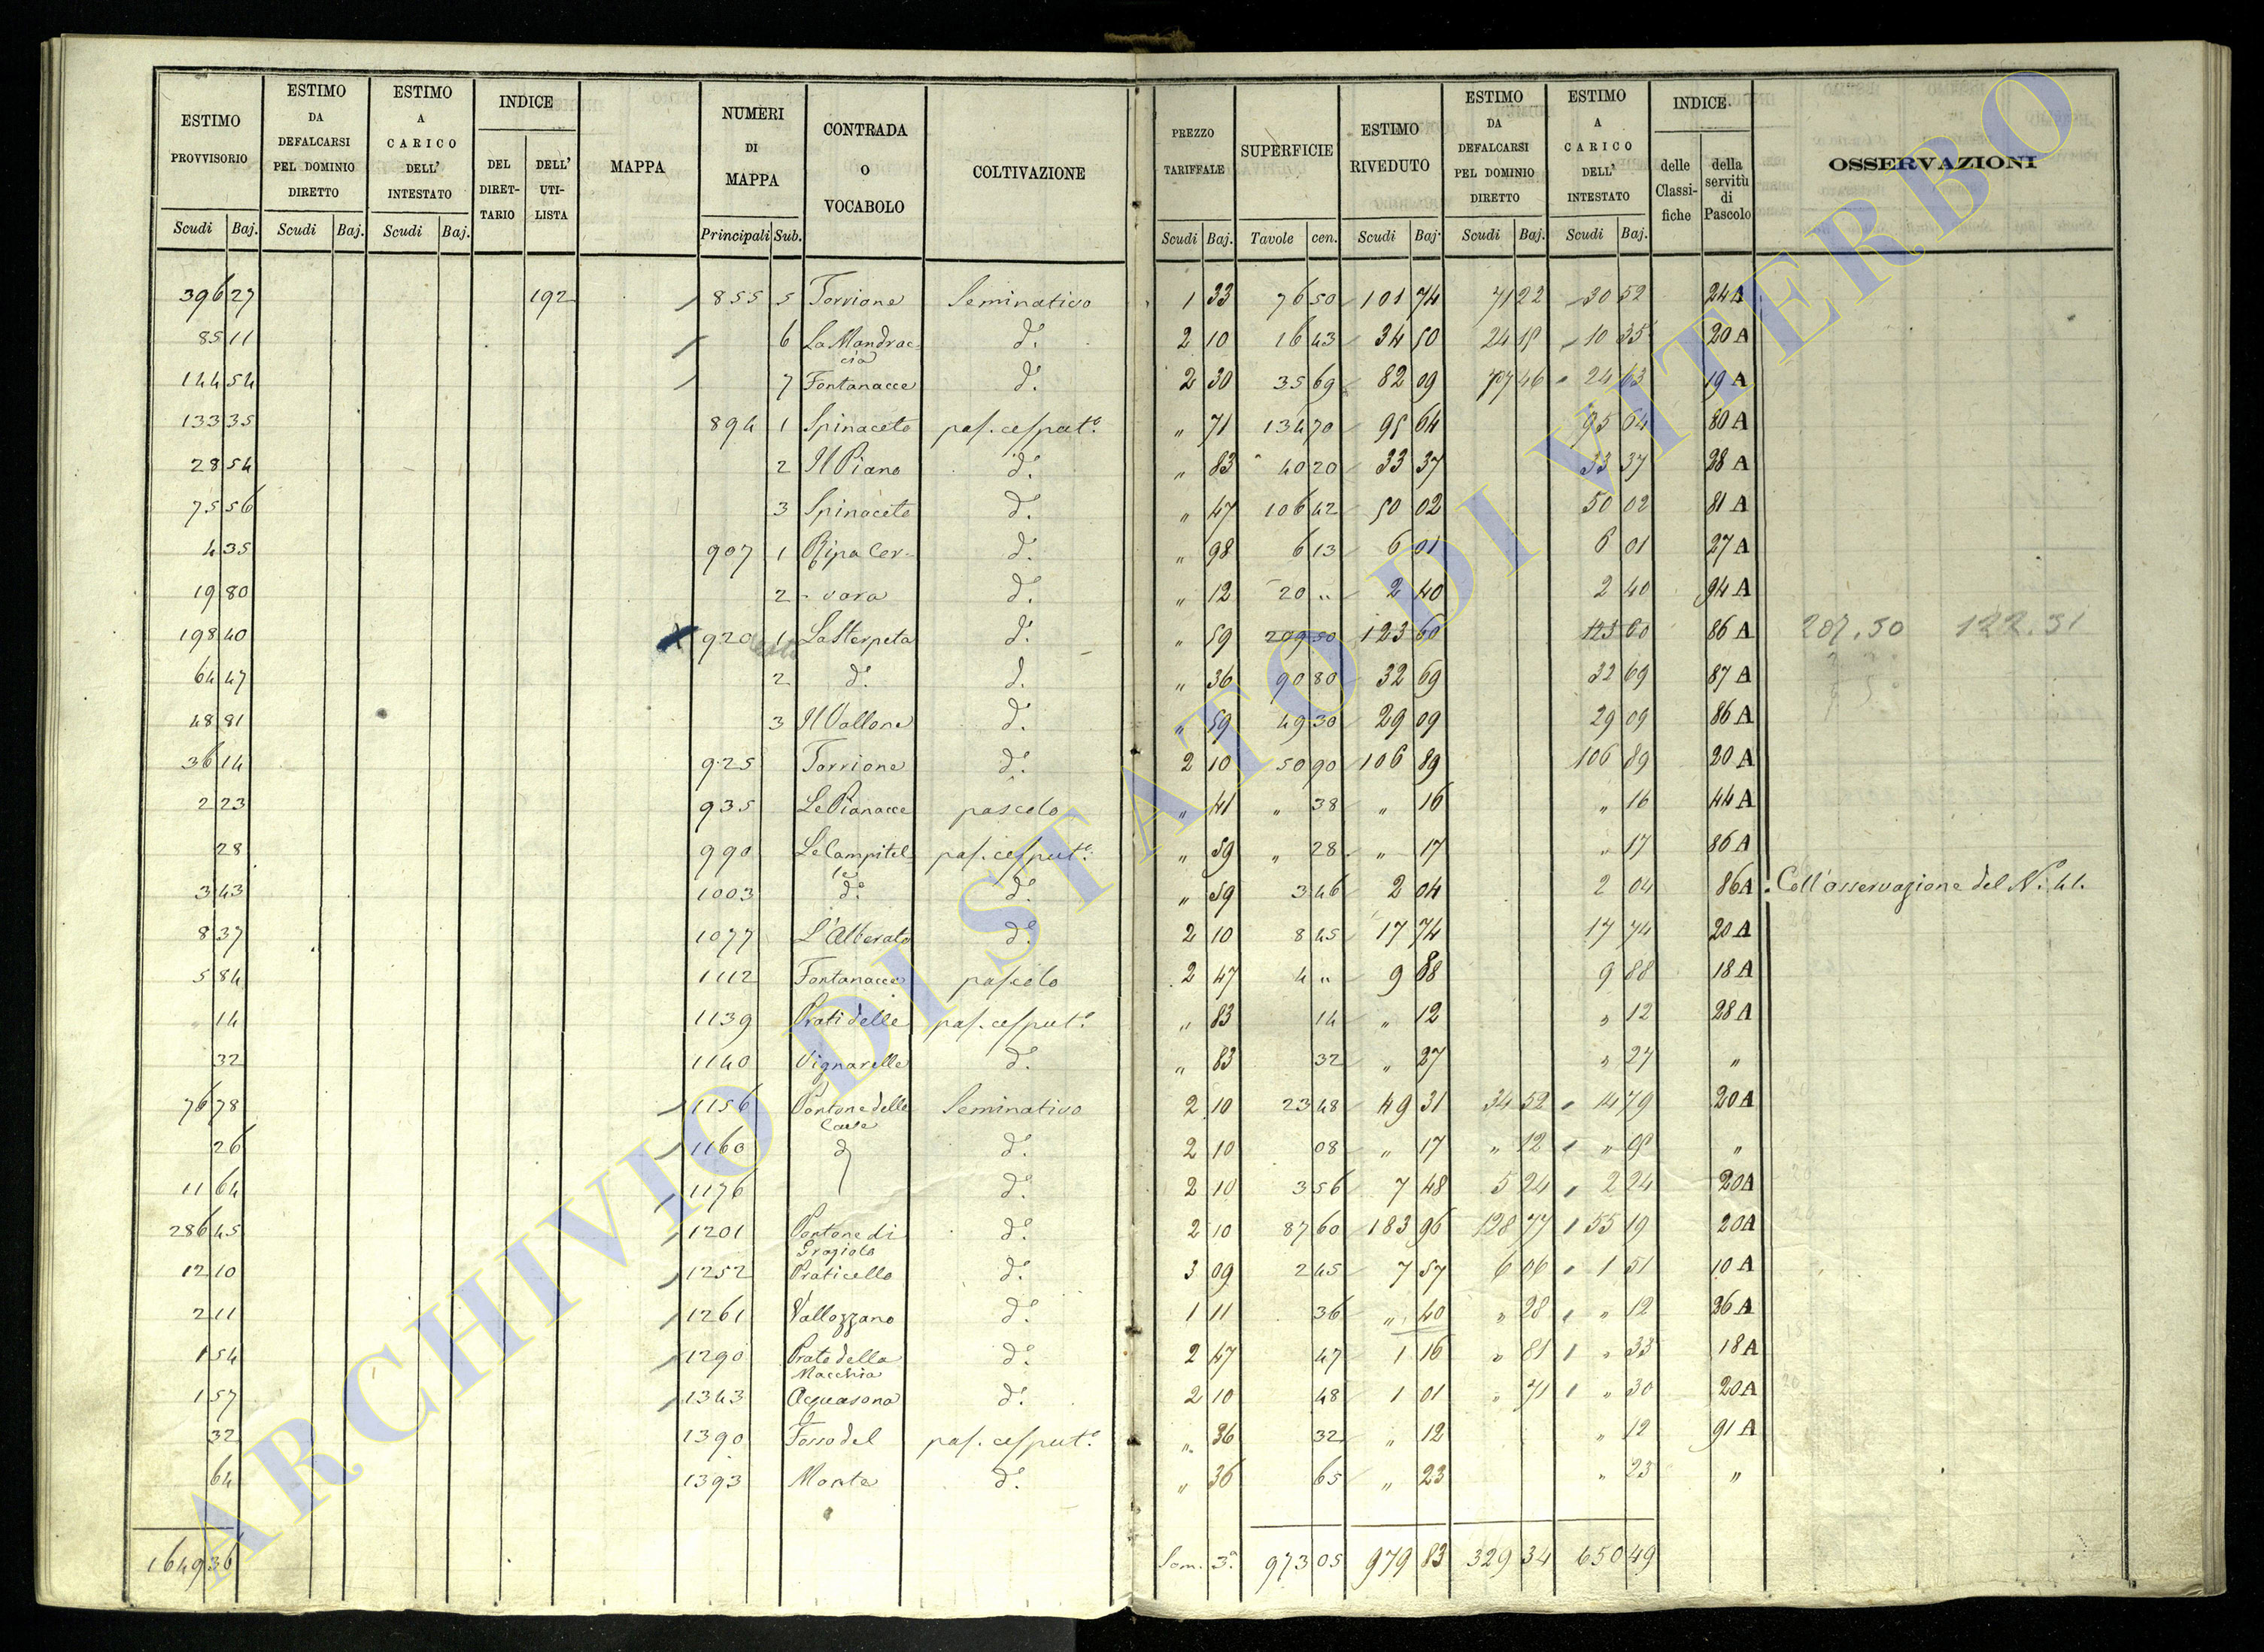 ESTIMO PROVVISORIO Scudi Baj. | ESTIMO DA DEFALCARSI PEL DOMINIO DIRETTO Scudi Baj. | ESTIMO A CARICO DELL' INTESTATO Scudi Baj. | INDICE DEL DIRET-TARIO DELL' UTI-LISTA | MAPPA | NUMERI DI MAPPA Principali Sub. | CONTRADA O VOCABOLO | COLTIVAZIONE | PREZZO TARIFFALE Scudi Baj. | SUPERFICIE Tavole cen. | ESTIMO RIVEDUTO Scudi Baj. | ESTIMO DA DEFALCARSI PEL DOMINIO DIRETTO Scudi Baj. | ESTIMO A CARICO DELL' INTESTATO Scudi Baj. | INDICE delle Classi-fiche della servitù di Pascolo | OSSERVAZIONI
396 27 192 855 5 Torrione Seminativo 1 33 76 50 101 74 71 22 30 52 24 A
85 11 6 La Mandrac-cia d.° 2 10 16 43 34 50 24 15 10 35 20 A
144 54 7 Fontanacce d.° 2 30 35 69 82 09 46 24 63 19 A
133 35 894 1 Spinaceto pas. cesput.° " 71 134 70 95 64 95 64 80 A
28 54 2 Il Piano d.° " 83 40 20 33 37 33 37 28 A
75 56 3 Spinaceto d.° " 47 106 42 50 02 50 02 81 A
4 35 907 1 Ripa Cer- d.° " 98 6 13 6 01 6 01 27 A
19 80 2 - vara d.° " 12 20 " 2 40 2 40 94 A
198 40 920 1 La Sterpeta d.° " 59 209 50 123 60 123 60 86 A 207.50 122.31
64 47 2 d.° d. " 36 90 80 32 69 32 69 87 A
48 81 3 Il Vallone d.° " 59 49 30 29 09 29 09 86 A
36 14 925 Torrione d.° 2 10 50 90 106 89 106 89 20 A
2 23 935 Le Pianacce pascolo " 41 " 38 " 16 " 16 44 A
28 990 Le Campitel-le pas. cesput.° " 59 " 28 " 17 " 17 86 A
3 43 1003 d.° d.° " 59 3 46 2 04 2 04 86 A Coll'osservazione del N. 41.
8 37 1077 L'Alberato d.° 2 10 8 45 17 74 17 74 20 A
5 84 1112 Fontanacce pascolo 2 47 4 " 9 88 9 88 18 A
" 14 1139 Prati delle pas. cesput.° " 83 14 " 12 " 12 28 A
32 1140 Vignarelle d.° " 83 32 " 27 " 27 "
76 78 1156 Pontone delle Case Seminativo 2 10 23 48 49 31 34 52 14 79 20 A
26 1160 d d.° 2 10 08 " 17 " 12 " 05 "
11 64 1176 d.° 2 10 3 56 7 48 5 24 2 24 20 A
286 45 1201 Pontone di Graziolo d.° 2 10 87 60 183 96 128 77 55 19 20 A
12 10 1252 Praticello d.° 3 09 2 45 7 57 6 06 1 51 10 A
2 11 1261 Vallozzano d.° 1 11 36 " 40 " 28 " 12 36 A
1 54 1290 Prato della Macchia d.° 2 47 47 1 16 " 81 " 35 18 A
1 57 1343 Acquasona d.° 2 10 48 1 01 " 71 " 30 20 A
32 1390 Fosso del pas. cesput.° " 36 32 " 12 " 12 91 A
64 1393 Monte d.° " 36 65 " 23 " 23 "
1649 36 Som. 3.ª 973 05 979 83 329 34 650 49
ARCHIVIO DI STATO DI VITERBO